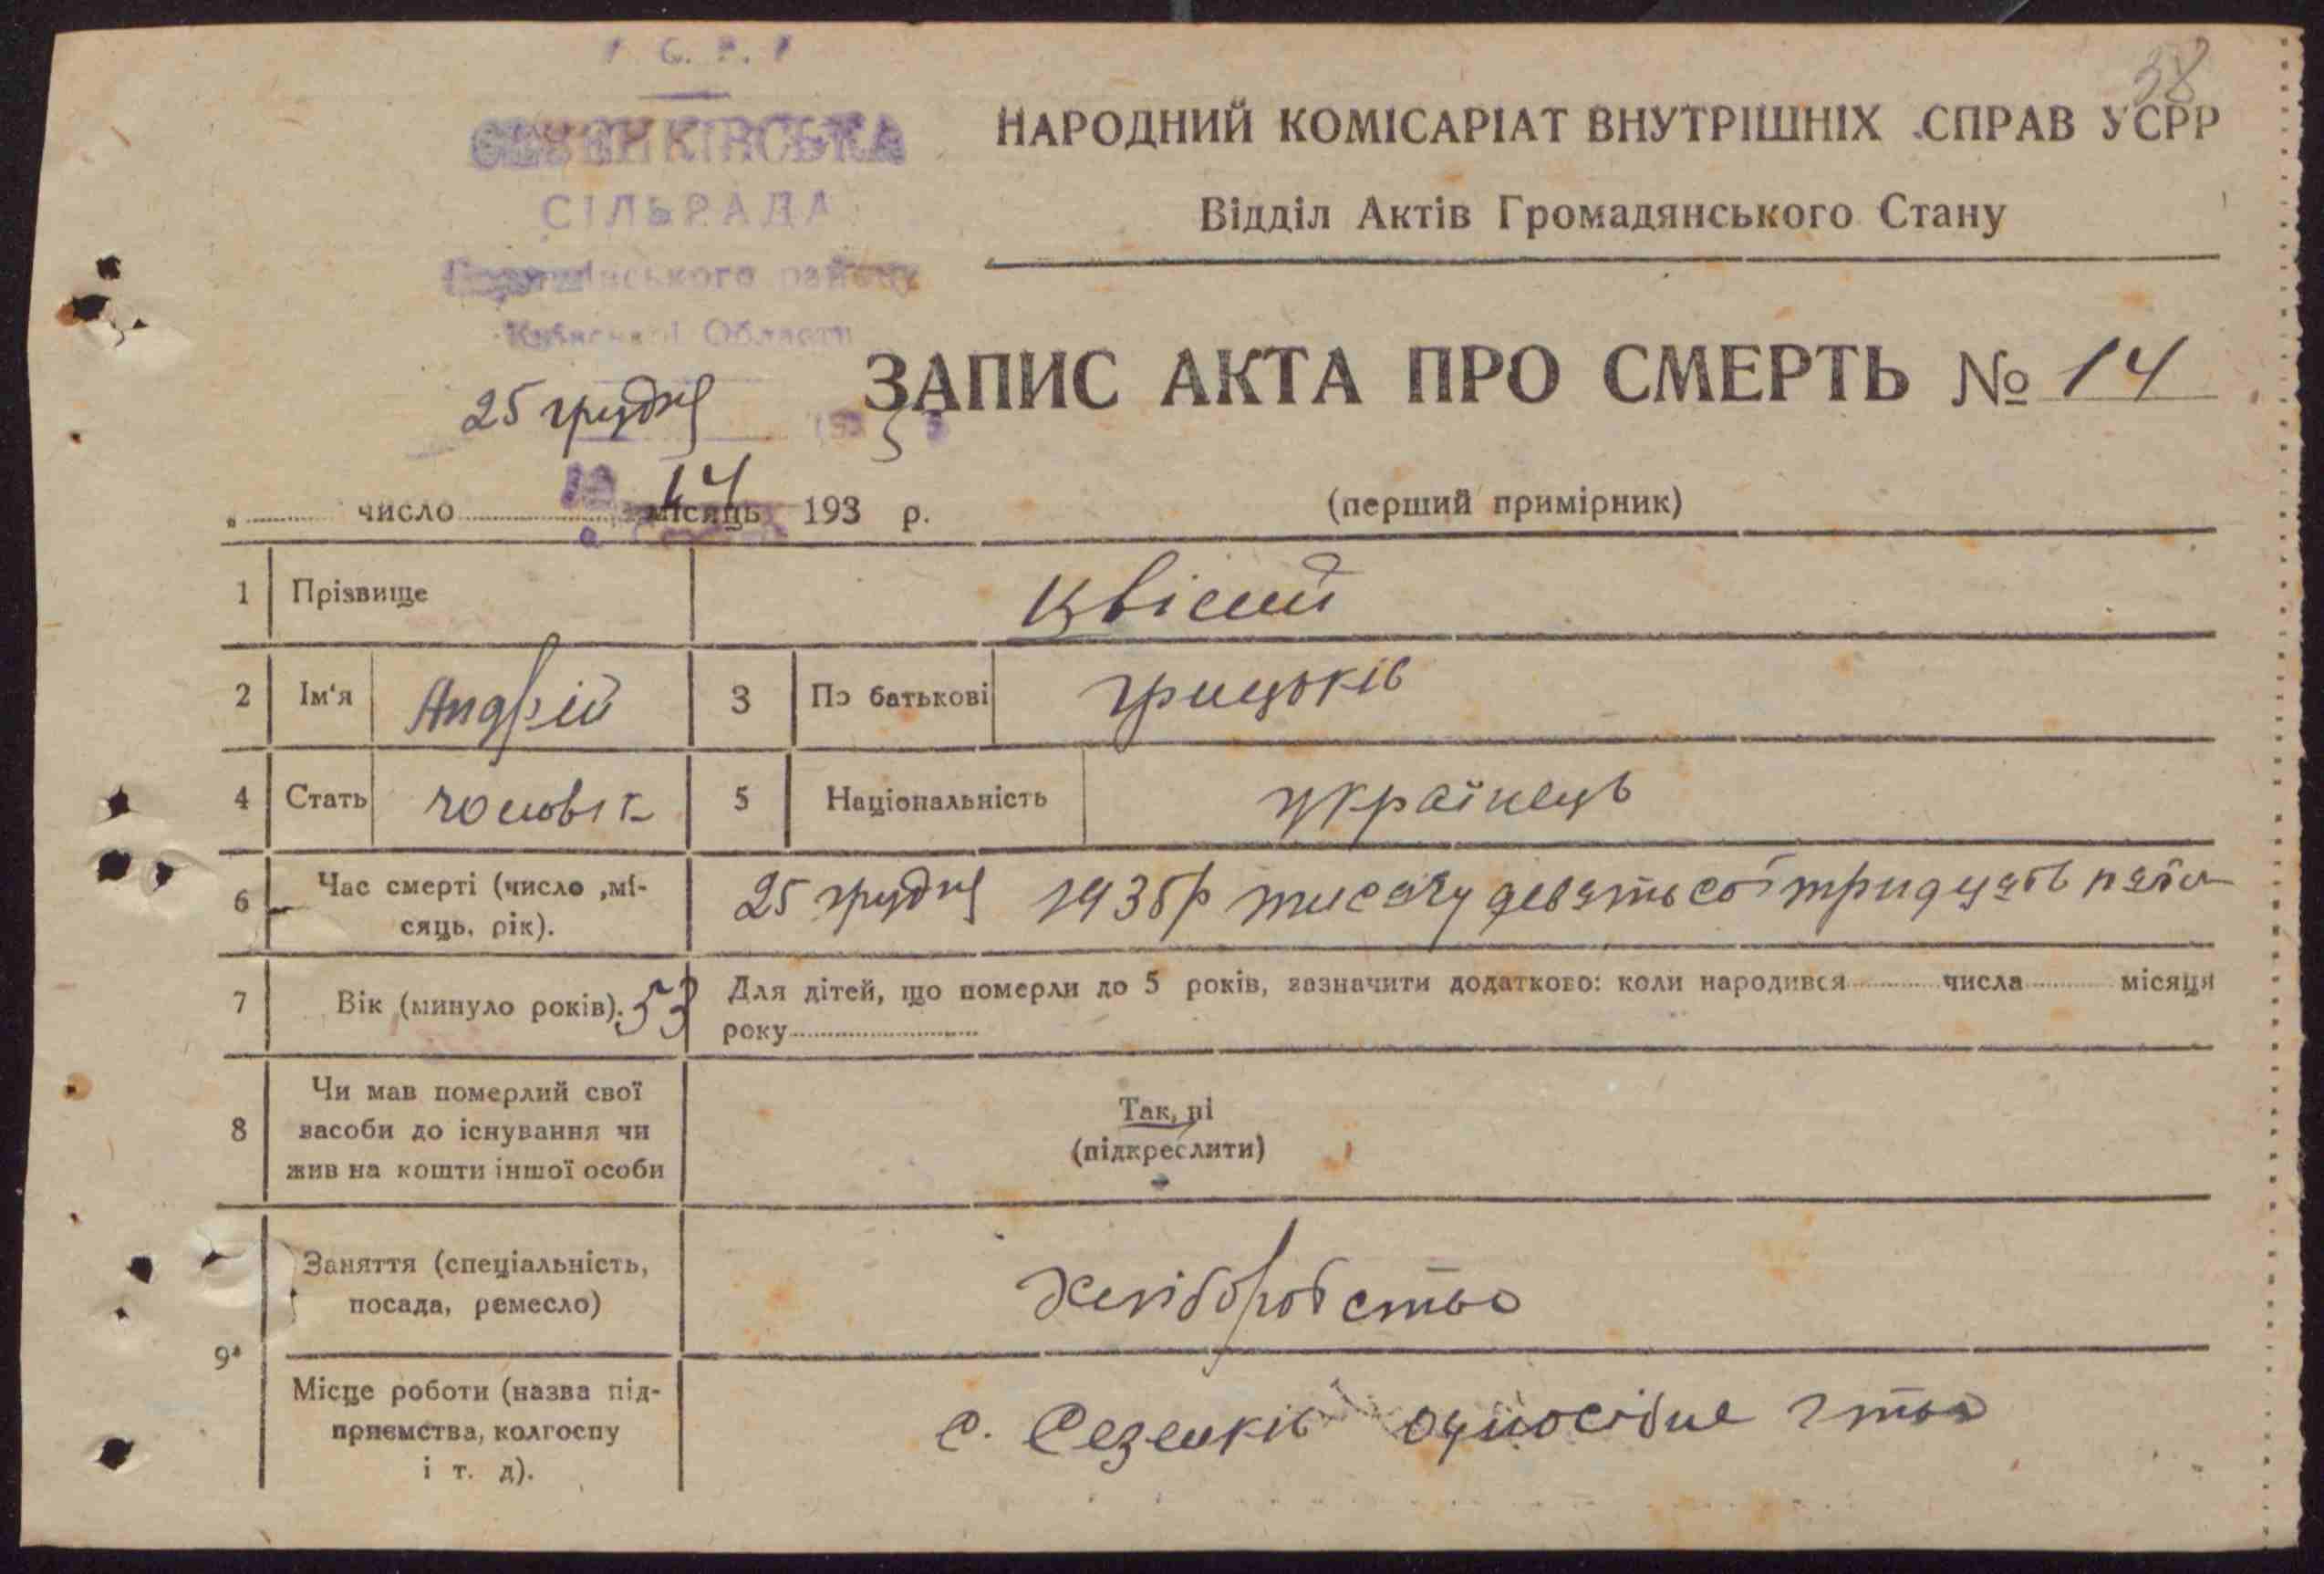 У.С.Р.Р.
38
НАРОДНИЙ КОМІСАРІАТ ВНУТРІШНІХ СПРАВ УСРР
СЕЗЕНКІВСЬКА
СІЛЬРАДА
Відділ Актів Громадянського Стану
району
Київської Области
ЗАПИС АКТА ПРО СМЕРТЬ № 14
25 грудня 1935
14
число місяць 193 р.
(перший примірник)
1 Прізвище Квісний
2 Ім'я Андрій 3 По батькові грицьків
4 Стать чоловік 5 Національність українець
6 Час смерті (число ,мі-
сяць, рік). 25 грудня 1935р тисячу девятьсоттридцять пято
7 Вік (минуло років). 53 Для дітей, що померли до 5 років, зазначити додатково: коли народився числа місяця
року
8 Чи мав померлий свої
засоби до існування чи
жив на кошти іншої особи
Так, ні
(підкреслити)
9 Заняття (спеціальність,
посада, ремесло) Хліборобство
Місце роботи (назва під-
приємства, колгоспу
і т. д).
с. Сезенків одноосібне